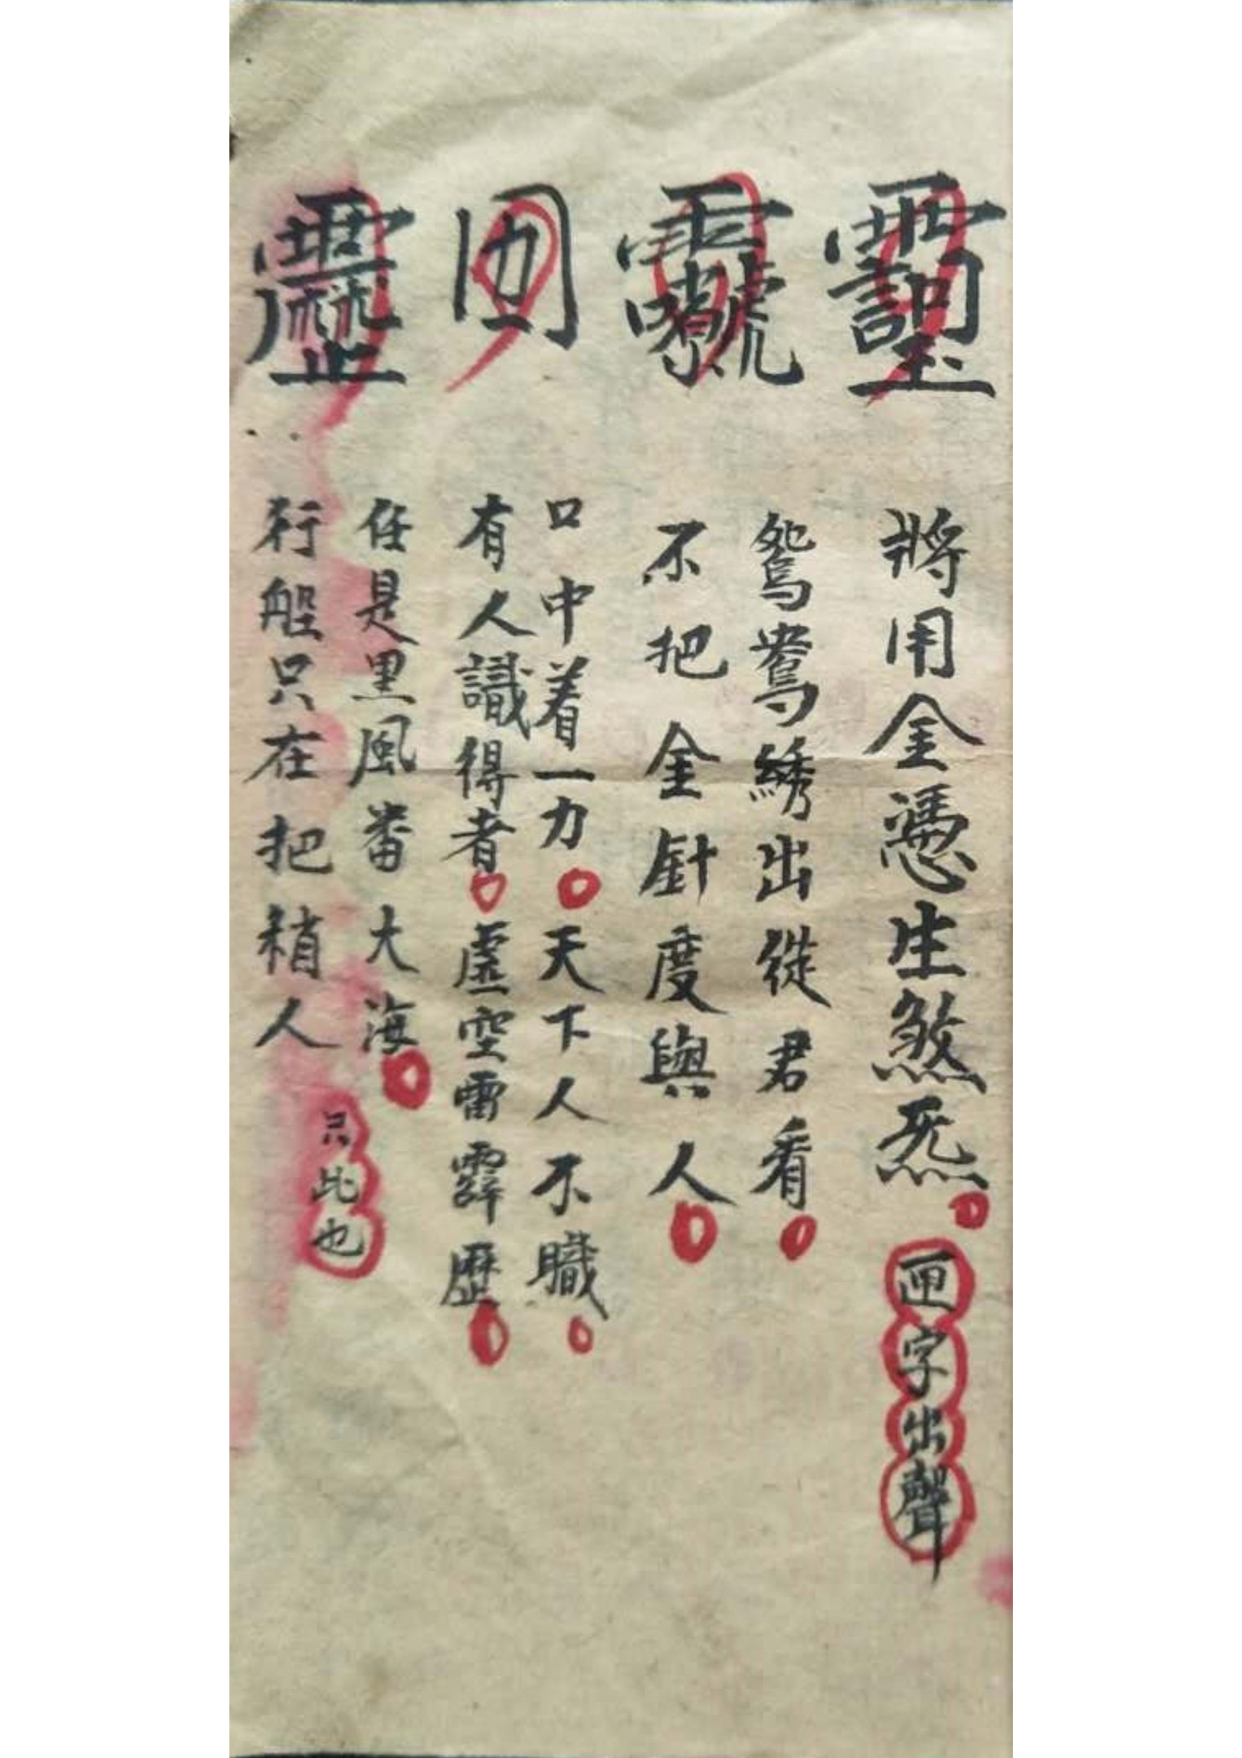 將用金憑生煞炁
匝字出聲
鴛鴦綉出從君看
不把金針度與人
口中着一力天下人不職
有人識得者虛空雷霹歷
任是黑風畨大海
行船只在把稍人
只此也